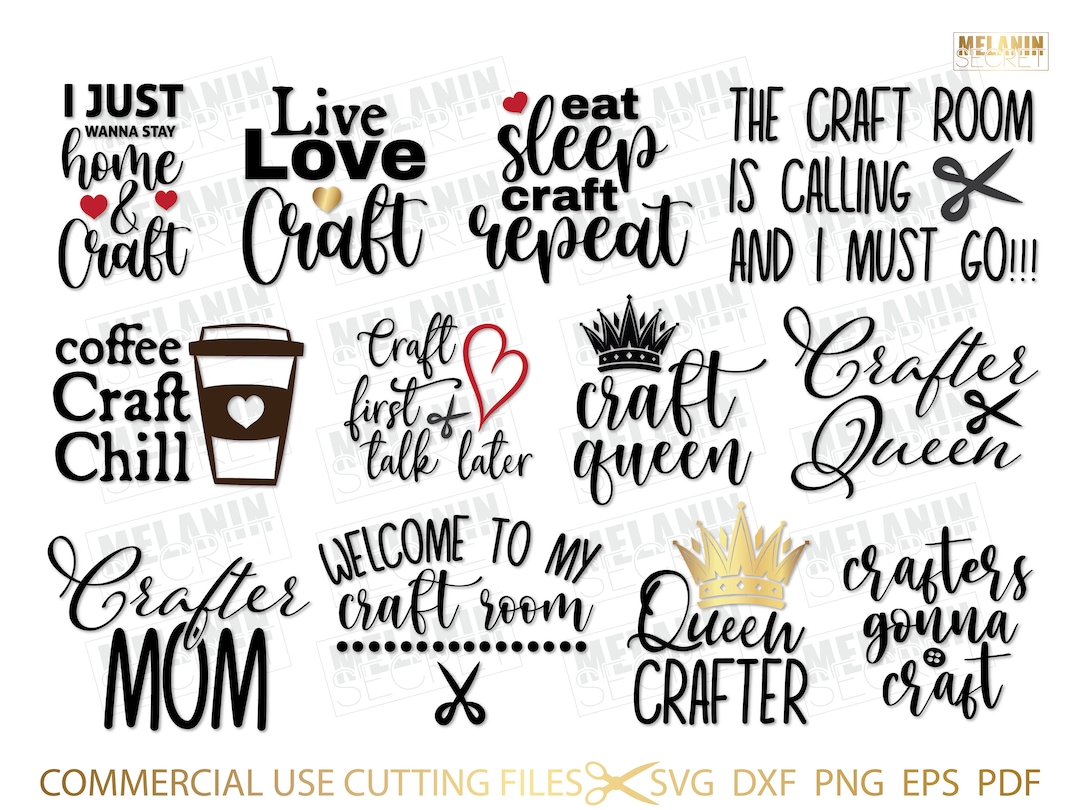 MELANIN
SECRET
I JUST
WANNA STAY
home
&
Craft
Live
Love
Craft
eat
sleep
craft
repeat
THE CRAFT ROOM
IS CALLING
AND I MUST GO!!!
coffee
Craft
Chill
Craft
first
talk later
craft
queen
Crafter
Queen
Crafter
MOM
WELCOME TO MY
craft room
Queen
CRAFTER
crafters
gonna
craft
COMMERCIAL USE CUTTING FILES SVG DXF PNG EPS PDF